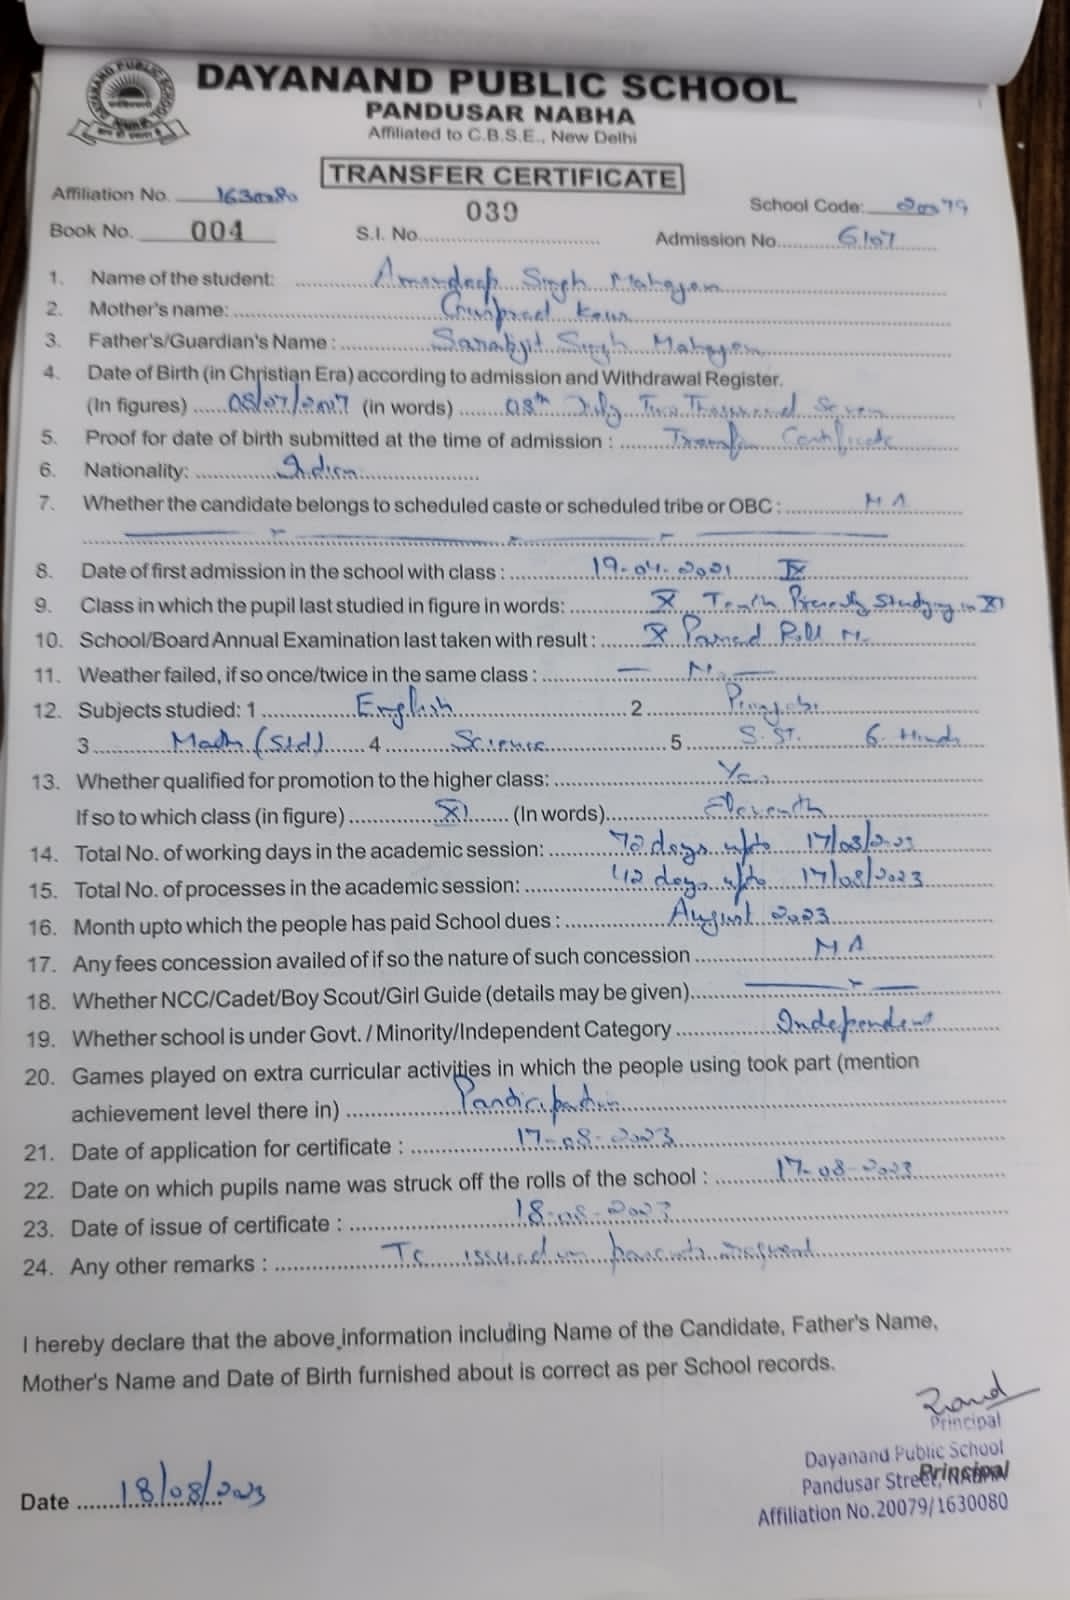 DAYANAND PUBLIC SCHOOL
PANDUSAR NABHA
Affiliated to C.B.S.E., New Delhi
TRANSFER CERTIFICATE
Affiliation No. 1630080
039
School Code: 20079
Book No. 004
S.I. No.
Admission No. 6107
1. Name of the student: Amandeep Singh Mahajan
2. Mother's name: Gurpreet Kaur
3. Father's/Guardian's Name : Sarabjit Singh Mahajan
4. Date of Birth (in Christian Era) according to admission and Withdrawal Register.
(In figures) 08/07/2007 (in words) 08th July Two Thousand Seven
5. Proof for date of birth submitted at the time of admission : Transfer Certificate
6. Nationality: Indian
7. Whether the candidate belongs to scheduled caste or scheduled tribe or OBC : NA
8. Date of first admission in the school with class : 19-04-2021 IX
9. Class in which the pupil last studied in figure in words: X Tenth Presently Studying in XI
10. School/Board Annual Examination last taken with result : X Passed Roll No.
11. Weather failed, if so once/twice in the same class : — No —
12. Subjects studied: 1 English 2 Punjabi
3 Math (Std) 4 Science 5 S.ST. 6. Hindi
13. Whether qualified for promotion to the higher class: Yes
If so to which class (in figure) XI (In words) Eleventh
14. Total No. of working days in the academic session: 72 days upto 17/08/2023
15. Total No. of processes in the academic session: 42 days upto 17/08/2023
16. Month upto which the people has paid School dues : August 2023
17. Any fees concession availed of if so the nature of such concession NA
18. Whether NCC/Cadet/Boy Scout/Girl Guide (details may be given)
19. Whether school is under Govt. / Minority/Independent Category Independent
20. Games played on extra curricular activities in which the people using took part (mention
achievement level there in) Participation
21. Date of application for certificate : 17-08-2023
22. Date on which pupils name was struck off the rolls of the school : 17-08-2023
23. Date of issue of certificate : 18-08-2023
24. Any other remarks : Tc issued on parents request
I hereby declare that the above information including Name of the Candidate, Father's Name,
Mother's Name and Date of Birth furnished about is correct as per School records.
Principal
Dayanand Public School
Principal
Pandusar Street, NABHA
Affiliation No.20079/1630080
Date 18/08/2023